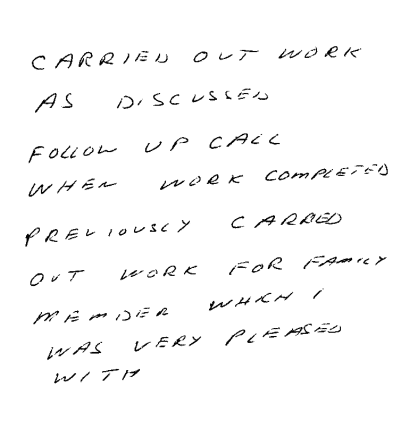 CARRIED OUT WORK
AS DISCUSSED
FOLLOW UP CALL
WHEN WORK COMPLETED
PREVIOUSLY CARRED
OUT WORK FOR FAMILY
MEMBER WHICH I
WAS VERY PLEASED
WITH